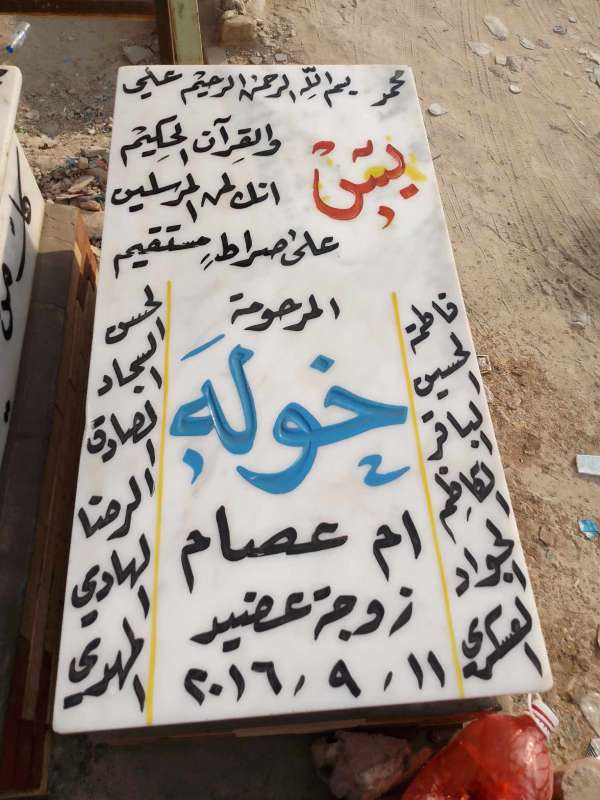 محمد بسم الله الرحمن الرحيم علي
يس
والقرآن الحكيم
انك لمن المرسلين
على صراط مستقيم
المرحومة
خوله
ام عصام
زوجة عضيد
٢٠١٦ ، ٩ ، ١١
فاطمة
الحسين
الباقر
الكاظم
الجواد
العسكري
الحسن
السجاد
الصادق
الرضا
الهادي
المهدي